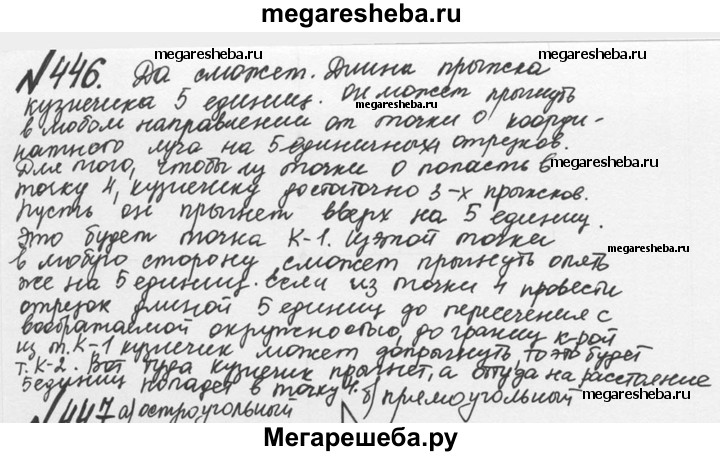 megaresheba.ru
№446. Да сможет. Длина прыжка
megaresheba.ru
megaresheba.ru
кузнечика 5 единиц. Он может прыгнуть
в любом направлении от точки О коорди-
натного луча на 5 единичных отрезков.
megaresheba.ru
Для того, чтобы из точки О попасть в
точку 4, кузнечику достаточно 3-х прыжков.
Пусть он прыгнет вверх на 5 единиц.
Это будет точка К-1. Из этой точки
megaresheba.ru
в любую сторону сможет прыгнуть опять
же на 5 единиц. Если из точки 4 провести
отрезок длиной 5 единиц до пересечения с
воображаемой окружностью, до границ к-рой
из т. К-1 кузнечик может допрыгнуть, то это будет
т. К-2. Вот туда кузнечик прыгнет, а оттуда на расстояние
5 единиц попадет в точку 4.
megaresheba.ru
megaresheba.ru
№447 а) остроугольный б) прямоугольный
Мегарешеба.ру